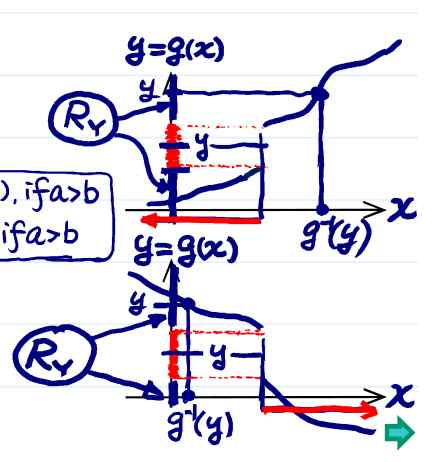 y=g(x)
y
R_Y
y
), if a>b
if a>b
x
g⁻¹(y)
y=g(x)
y
R_Y
y
x
g⁻¹(y)